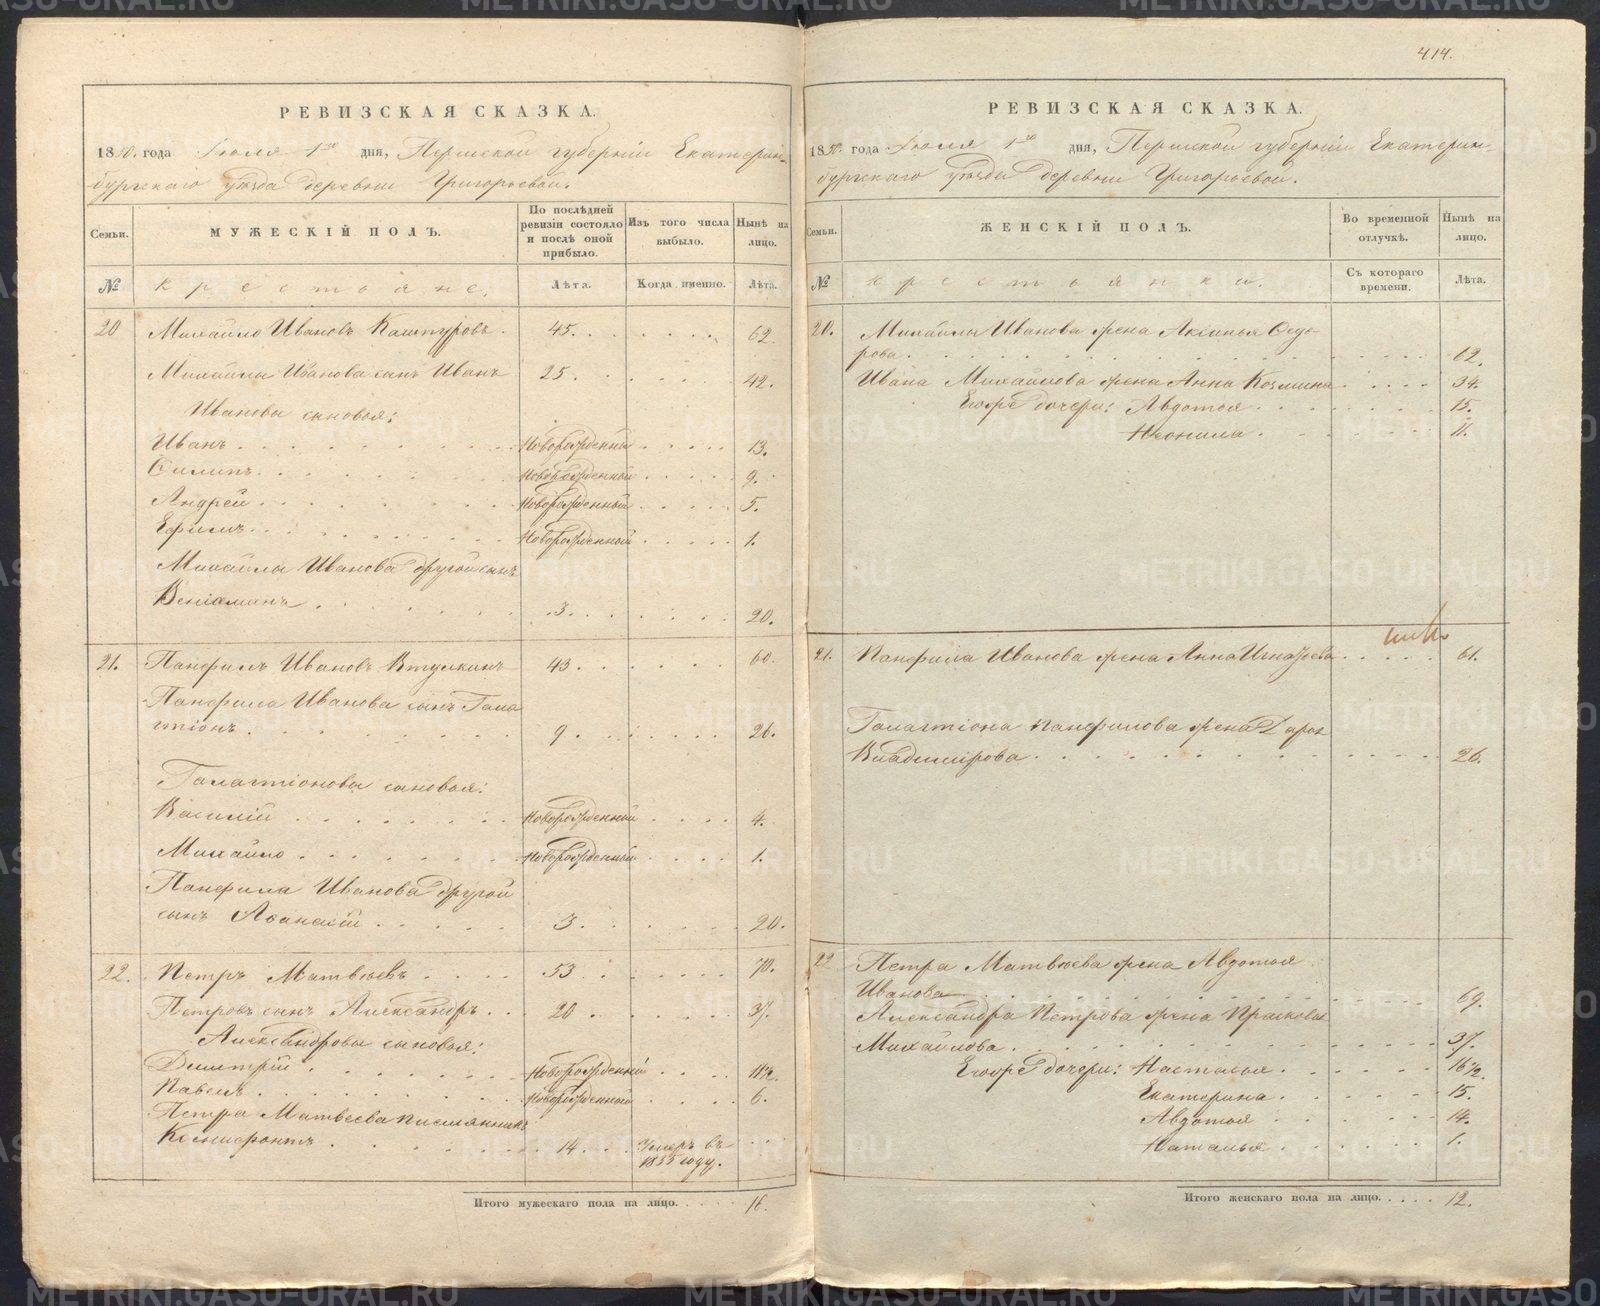 414.
РЕВИЗСКАЯ СКАЗКА.
1850. года Іюля 1го дня, Пермской губерніи Екатерин-
бургскаго уѣзда деревни Григорьевой.
Семьи. МУЖЕСКІЙ ПОЛЪ. По послѣдней ревизіи состояло и послѣ оной прибыло. Изъ того числа выбыло. Нынѣ на лицо.
№ крестьяне. Лѣта. Когда именно. Лѣта.
20 Михайло Ивановъ Кашпуровъ. 45. 62.
Михайлы Иванова сынъ Иванъ 25. 42.
Ивановы сыновья:
Иванъ. Новорожденный 13.
Филипъ. Новорожденный 9.
Андрей. Новорожденный 5.
Ефимъ. Новорожденный 1.
Михайлы Иванова другой сынъ
Веніаминъ. 3. 20.
21. Панфилъ Ивановъ Втулкинъ 43. 60.
Панфила Иванова сынъ Гала
ктіонъ. 9. 26.
Галактіоновы сыновья:
Василій Новорожденный 4.
Михайло. Новорожденный 1.
Панфила Иванова другой
сынъ Афанасій. 3. 20.
22. Петръ Матвѣевъ 53. 70.
Петровъ сынъ Александръ. 20. 37.
Александровы сыновья:
Димитрій. Новорожденный 11½.
Павелъ. Новорожденный 6.
Петра Матвѣева племянникъ
Ксенофонтъ. 14. Умеръ въ
1835 году.
Итого мужескаго пола на лицо. 16.
РЕВИЗСКАЯ СКАЗКА.
1850. года Іюля 1го дня, Пермской губерніи Екатерин-
бургскаго уѣзда деревни Григорьевой.
Семьи. ЖЕНСКІЙ ПОЛЪ. Во временной отлучкѣ. Нынѣ на лицо.
№ крестьянки. Съ котораго времени. Лѣта.
20. Михайлы Иванова жена Аксинья Федо-
рова. 62.
Ивана Михайлова жена Анна Козмина 34.
Его дочери: Авдотья 15.
Неонила. 11.
21. Панфила Иванова жена Анна Игнатьева 61.
Галактіона Панфилова жена Дарья
Владимірова. 26.
22 Петра Матвѣева жена Авдотья
Иванова 69.
Александра Петрова жена Прасковья
Михайлова. 37.
Его дочери: Настасья. 16½.
Екатерина. 15.
Авдотья 14.
Наталья. 1.
Итого женскаго пола на лицо. 12.
METRIKI.GASO-URAL.RU